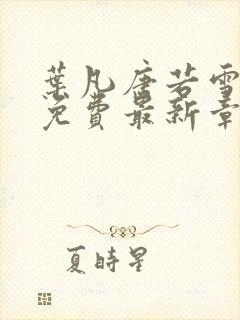 葉凡唐若雪
免費最新章
夏時星